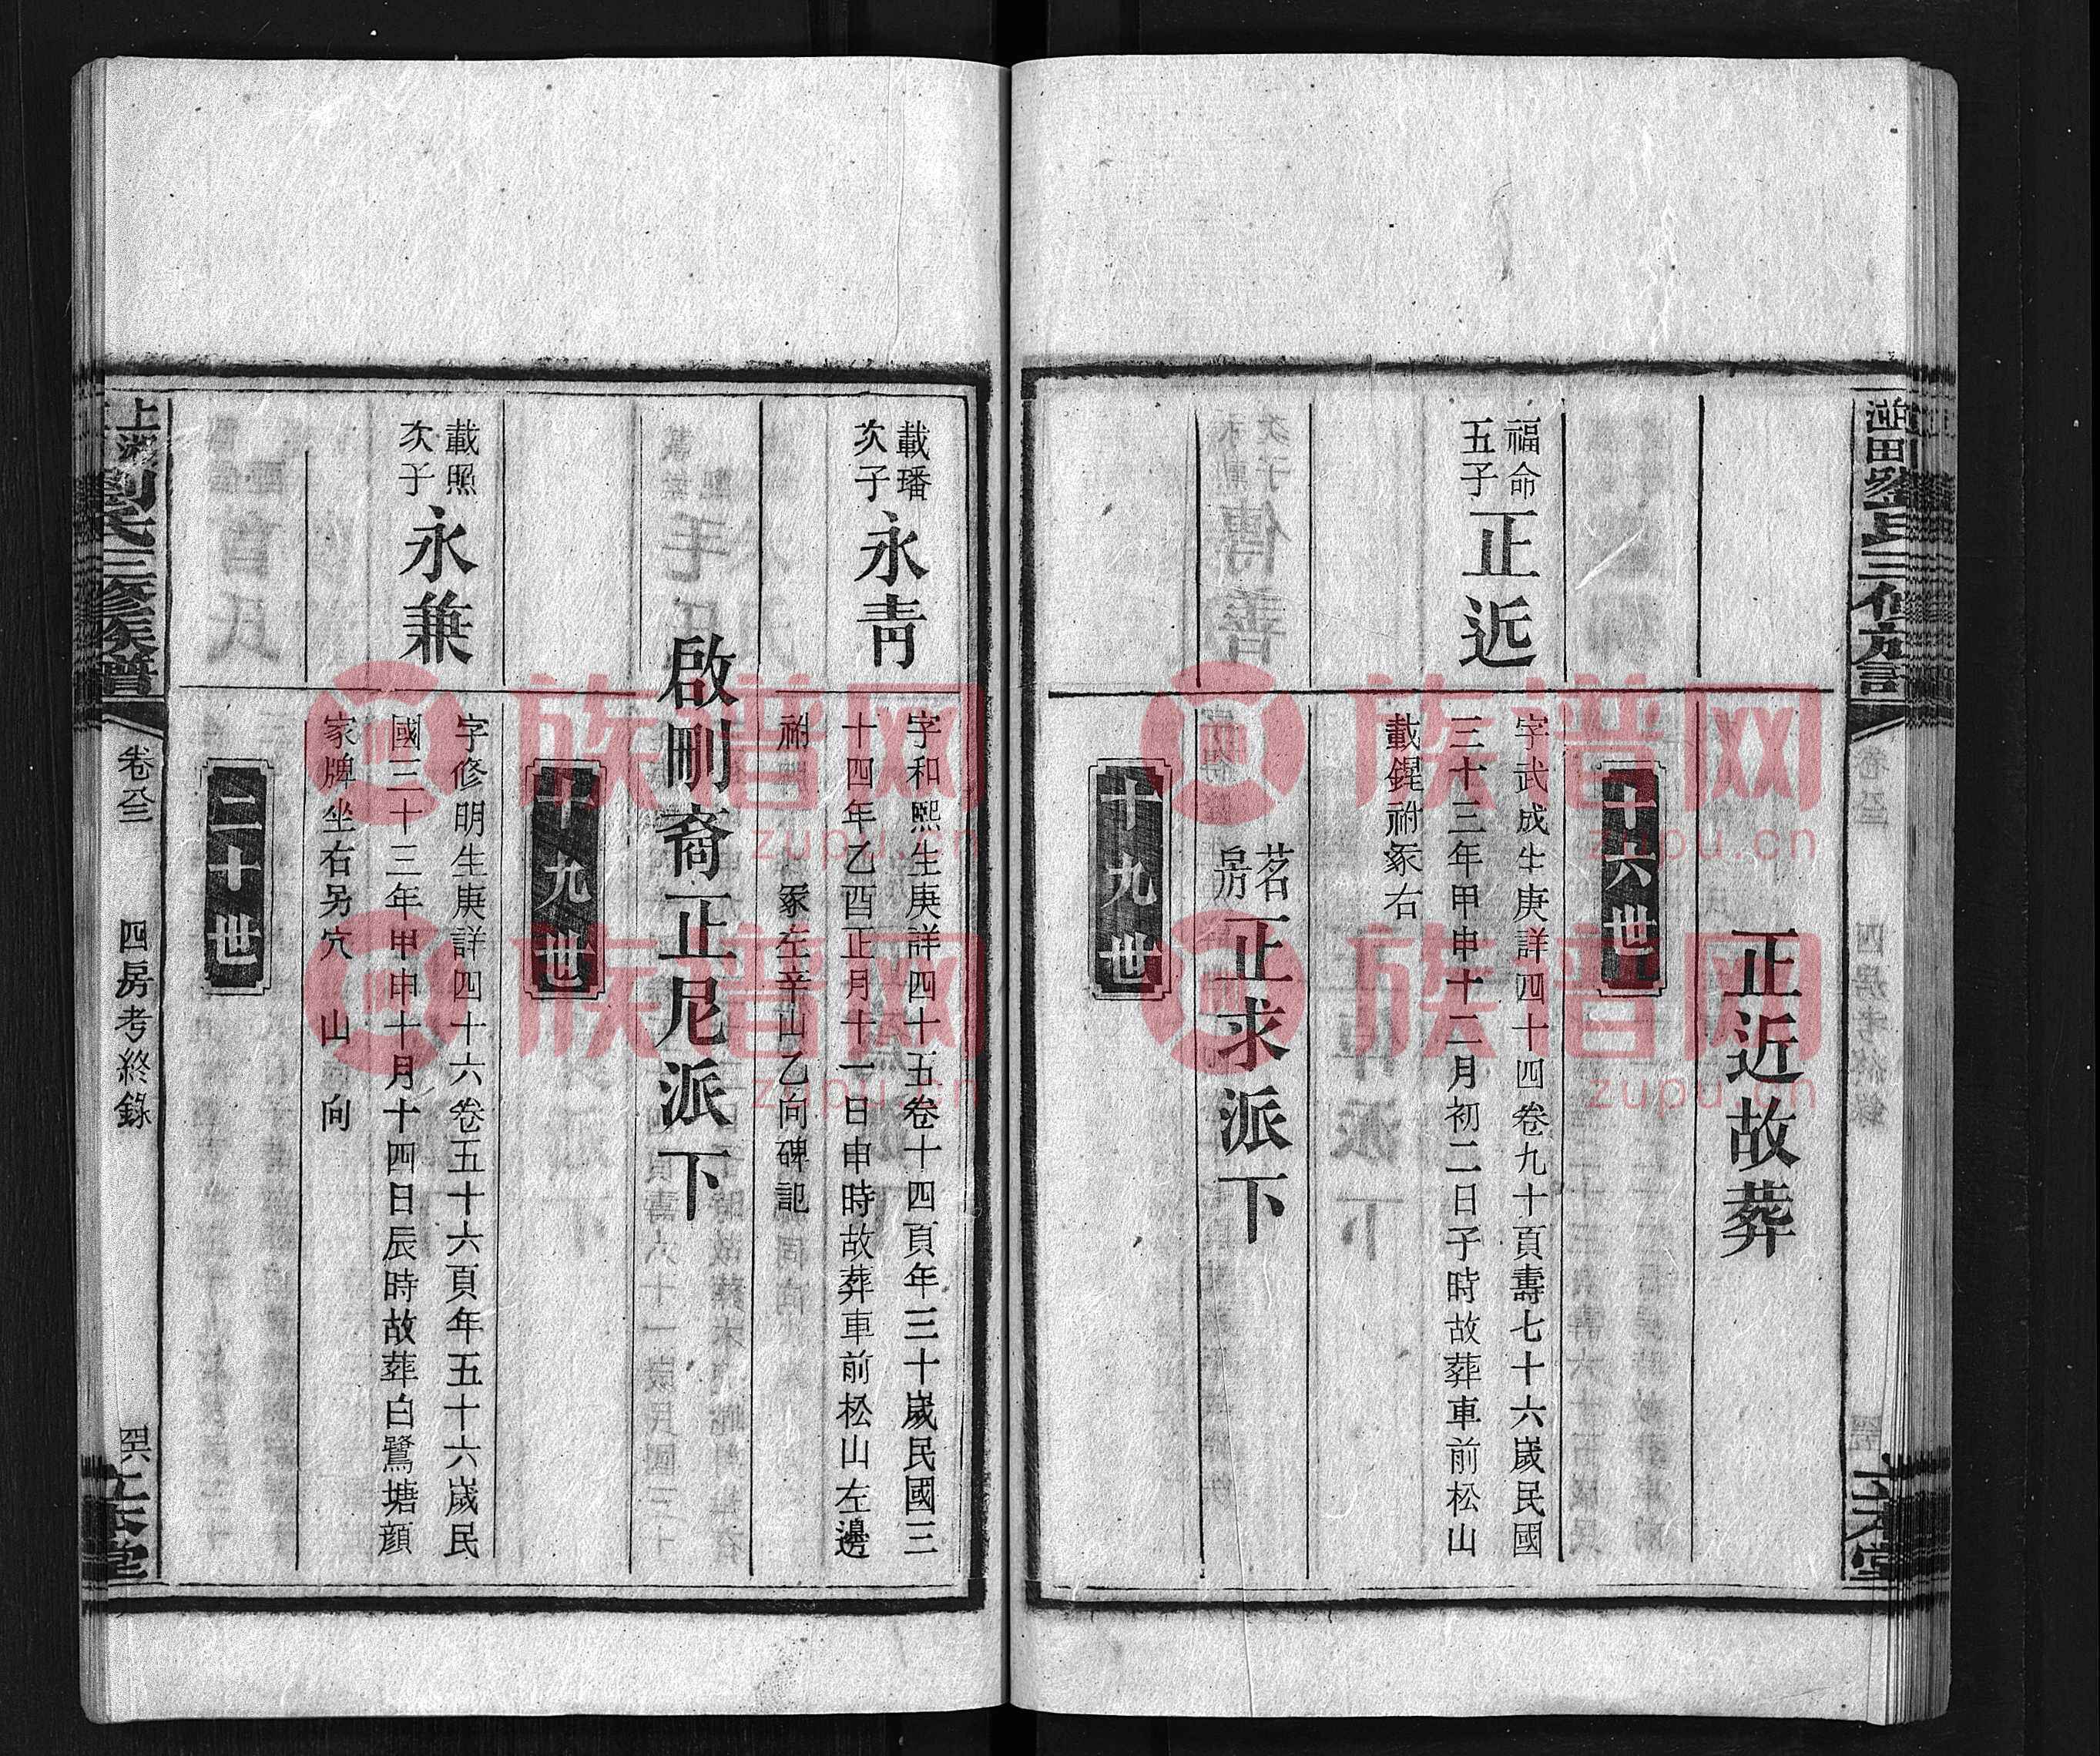 正近故葬
十六世
福命
五子
正近
字武成生庚詳四十四卷九十頁壽七十六歲民國
三十三年甲申十二月初二日子時故葬車前松山
載鍟祔冢右
茗
房
正求派下
十九世
載璠
次子
永青
字和熙生庚詳四十五卷十四頁年三十歲民國三
十四年乙酉正月十一日申時故葬車前松山左邊
祔 冢左辛山乙向碑記
啟剛裔正尼派下
十九世
載煕
次子
永兼
字修明生庚詳四十六卷五十六頁年五十六歲民
國三十三年甲申十月十四日辰時故葬白鷺塘顔
家牌坐右另穴 山 向
二十世
劉氏三修族譜
四房考終錄
族谱网
zupu.cn
族谱网
zupu.cn
族谱网
zupu.cn
族谱网
zupu.cn